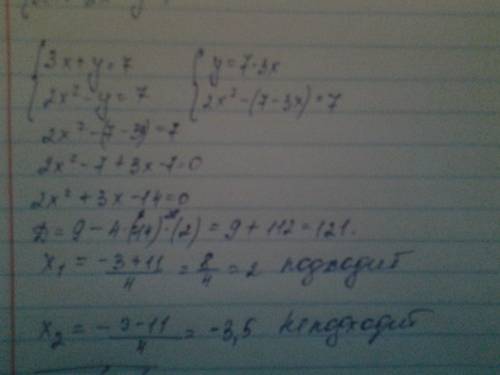 {3x+y=7 {y=7-3x
{2x²-y=7 {2x²-(7-3x)=7
2x²-(7-3x)=7
2x²-7+3x-7=0
2x²+3x-14=0
D=9-4·(-14)·(2)=9+112=121.
x₁=(-3+11)/4=8/4=2 подходит
x₂=(-3-11)/4=-3,5 не подходит